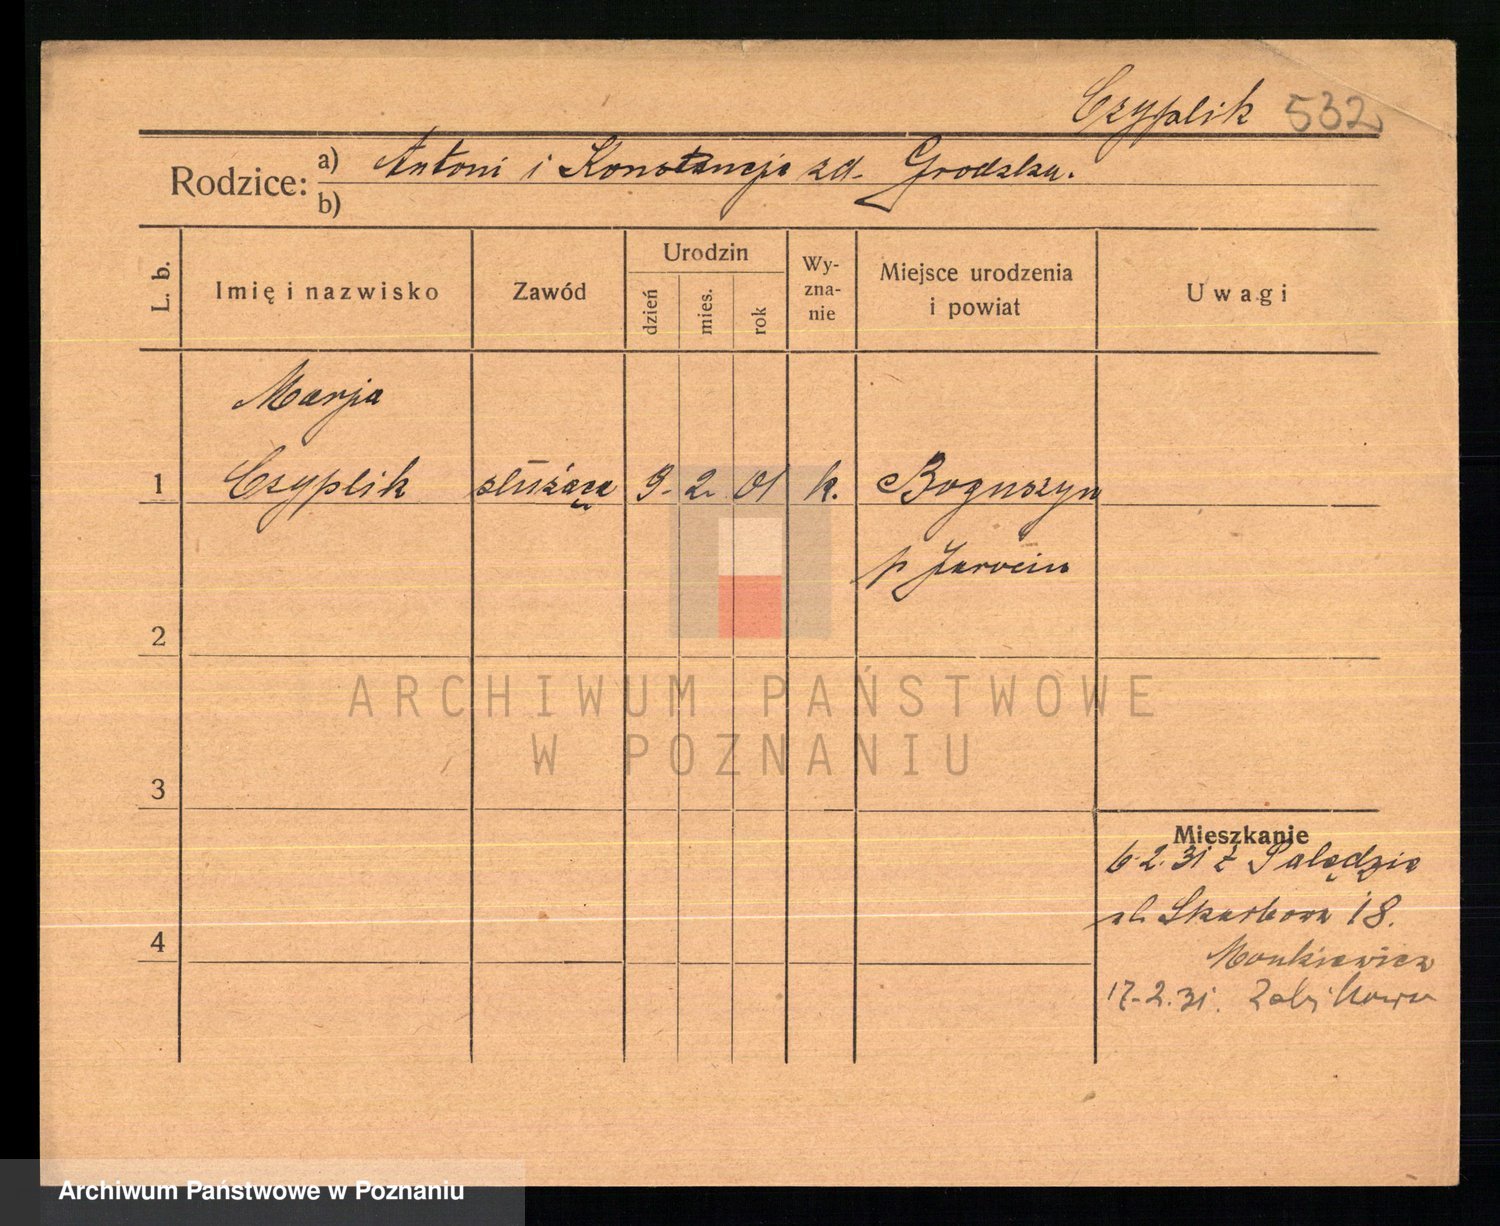 Czyplik 532
Rodzice: a) Antoni i Konstancja zd. Grodzka.
b)
L. b.
Imię i nazwisko
Zawód
Urodzin
dzień
mies.
rok
Wy-
zna-
nie
Miejsce urodzenia
i powiat
Uwagi
Marja
1 Czyplik służąca 9. 2. 01 k. Boguszyn
p Jarocin
2
ARCHIWUM PAŃSTWOWE
W POZNANIU
3
Mieszkanie
6.2.31 z Palędzie
ul. Skarbowa 18.
4
Monkiewicz
17.2.31. Zabikowo
Archiwum Państwowe w Poznaniu